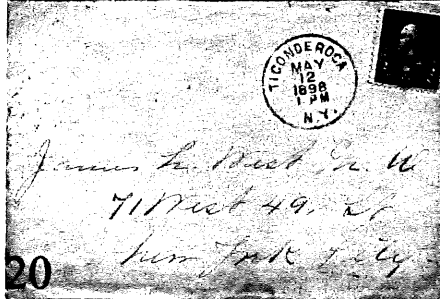 TICONDEROGA
MAY
12
1898
1 PM
N.Y.
James L. West
71 West 49. St
New York City
20